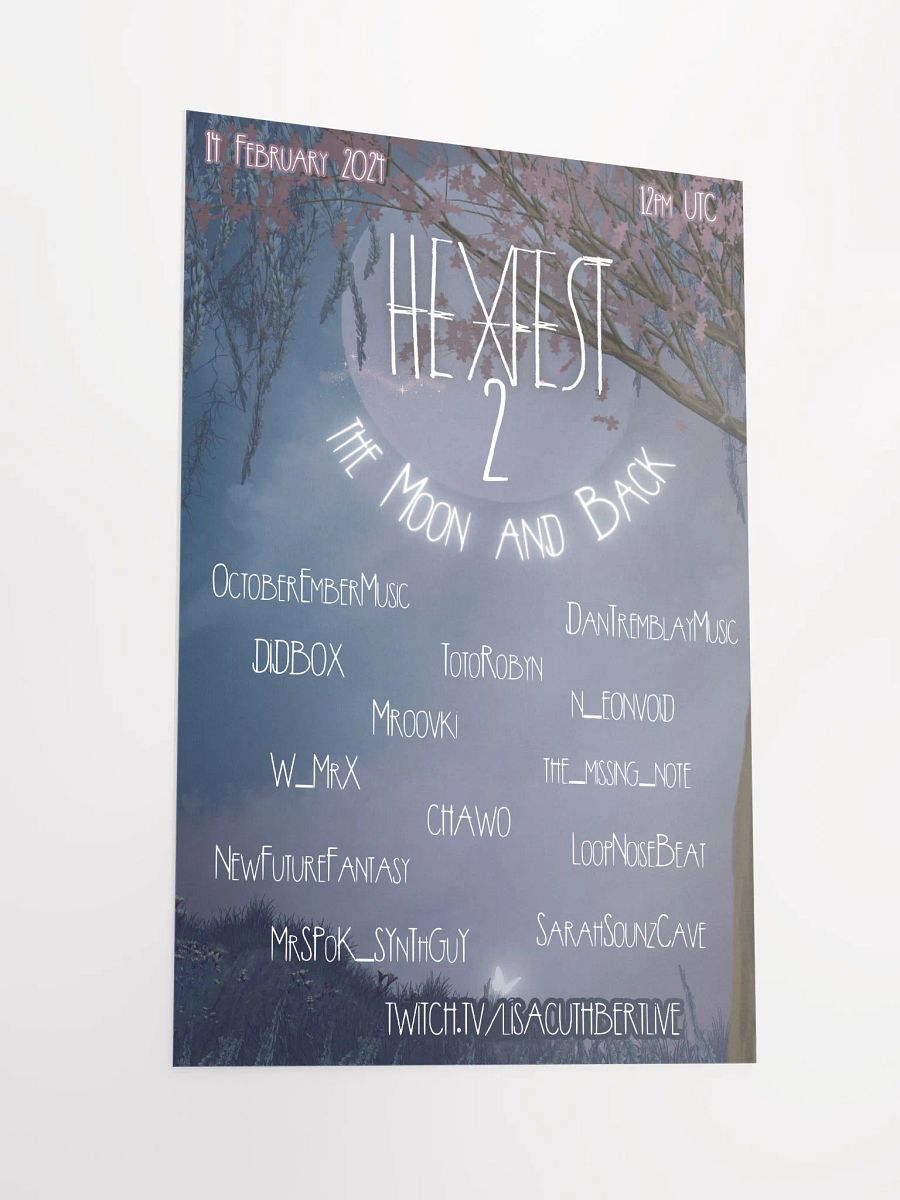 14 February 2024
12pm UTC
HEXFEST
2
The Moon and Back
OctoberEmberMusic
DanTremblayMusic
DiDBOX
TotoRobyn
n_eonvoid
Mroovki
W_MrX
the_missing_note
chawo
LoopNoiseBeat
NewFutureFantasy
SarahSounzCave
MrSPoK_SYnThGuY
twitch.tv/lisacuthbertlive